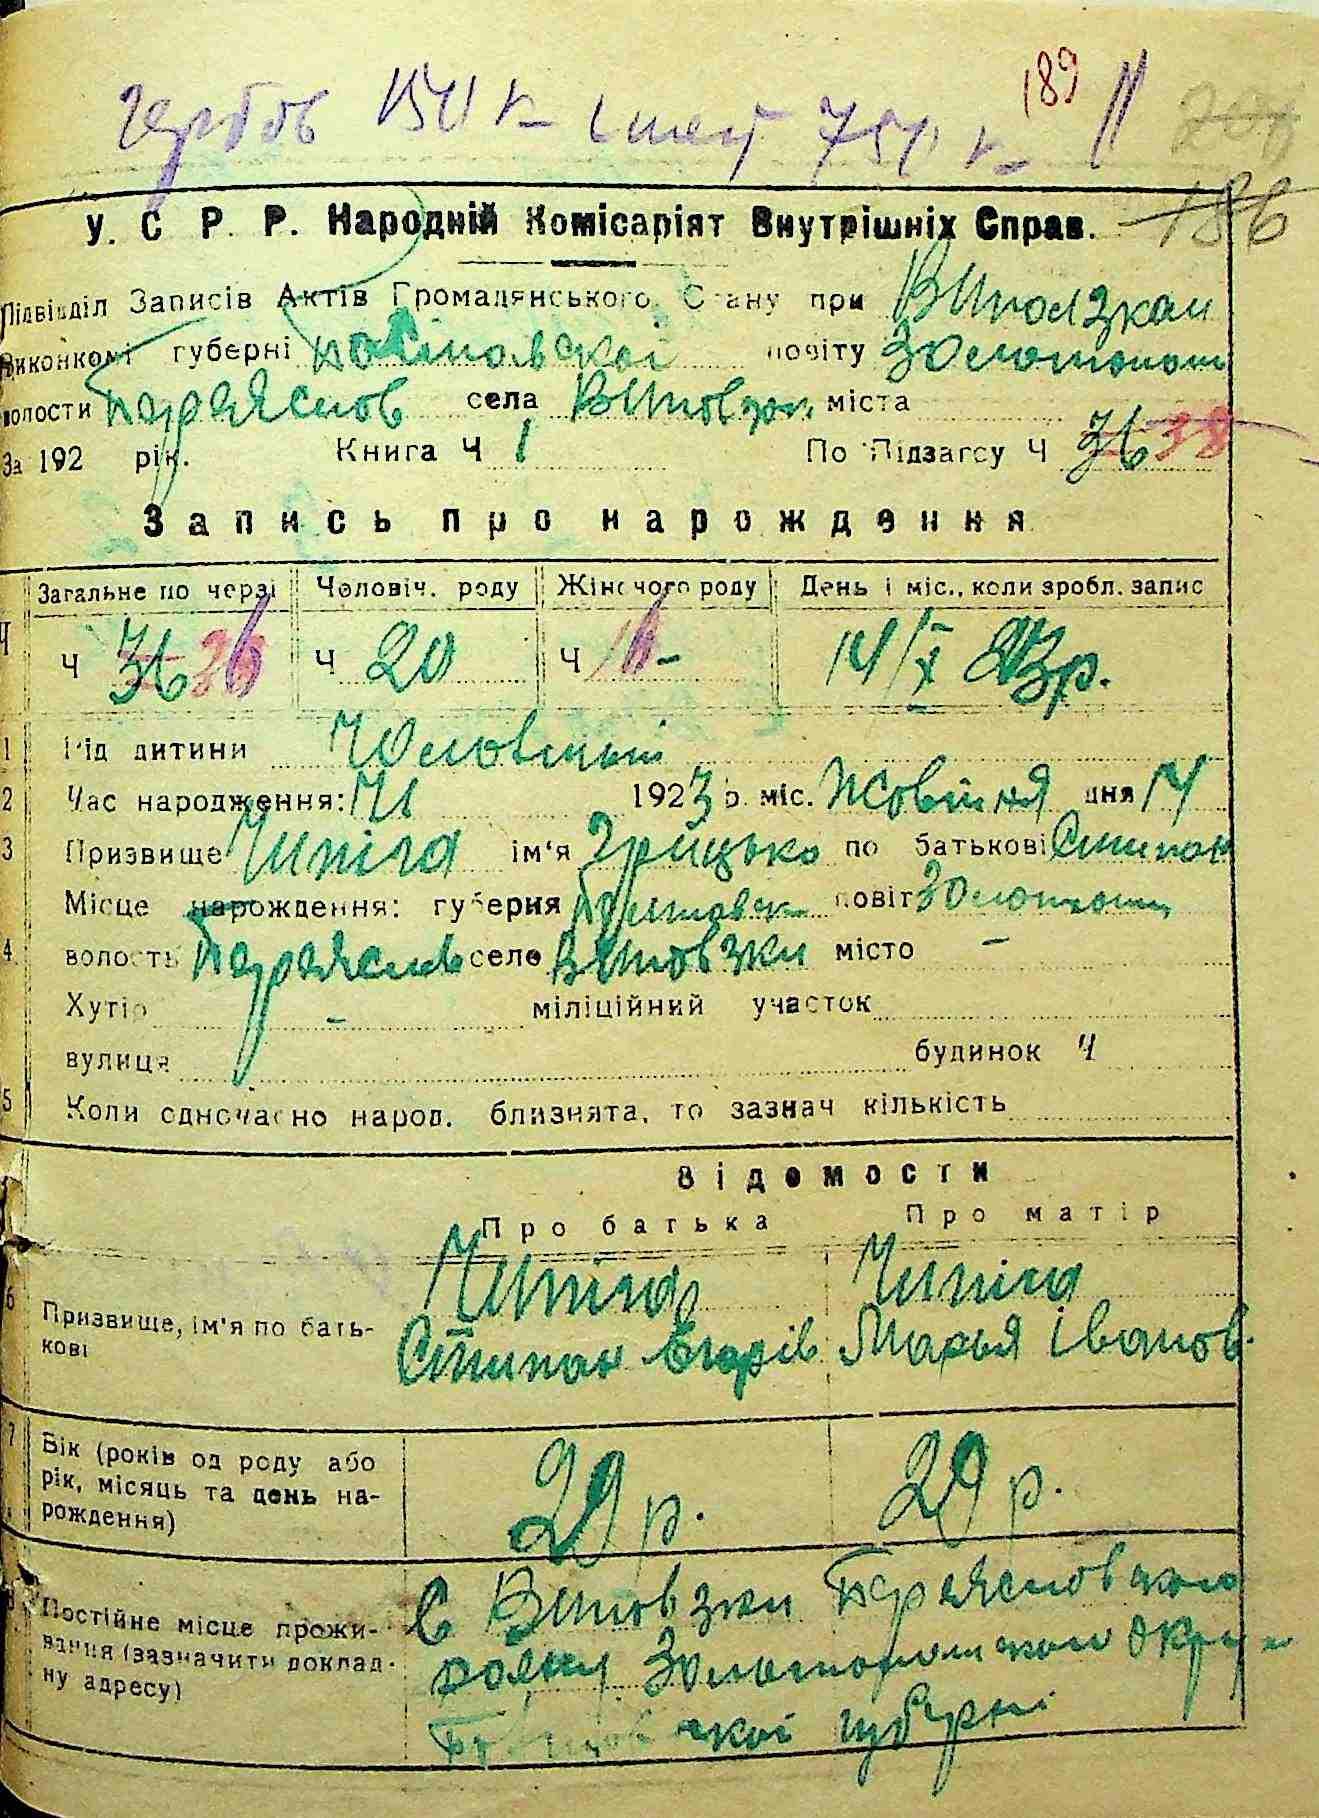 189
186
У. С. Р. Р. Народній Комісаріят Внутрішніх Справ.
Підвідділ Записів Актів Громадянського Стану при
Виконкомі губерні Полтавскоі повіту Золотонош
волости Переяслов села Вітовзки міста
За 192 рік. Книга Ч 1 По Підзагсу Ч 36 38
Запись про нарождення
Загальне по черзі Чоловіч. роду Жіночого роду День і міс., коли зробл. запис
Ч 36 36 Ч 20 Ч 16 - 14/X 23р.
1 Рід дитини Чоловічий
2 Час народження: 1923 р. міс. Жовтня дня 14
3 Призвище Чипіга ім'я Грицько по батькові Степан
Місце нарождення: губерния Полтавск повіт Золотонош
4 волость Переяслов село Вітовзки місто -
Хутір - міліційний участок
вулиця будинок Ч
5 Коли одночасно народ. близнята, то зазнач кількість
Відомости
Про батька Про матір
Чипіга Чипіга
6 Призвище, ім'я по бать-
кові
Степан Єгорів Марья Іванов.
7 Вік (років од роду або
рік, місяць та день на-
рождення)
29 р. 29 р.
8 Постійне місце прожи-
вання (зазначити доклад-
ну адресу)
С Вітовзки Переясловского
району Золотонош округи
Полтавскоі губерні